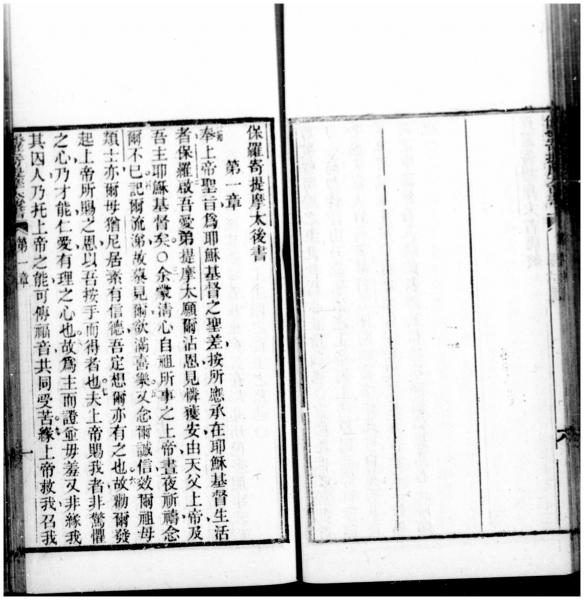 保羅寄提摩太後書
第一章
奉上帝聖旨爲耶穌基督之聖差按所應承在耶穌基督生活
者保羅啟吾愛弟提摩太願爾沾恩見憐獲安由天父上帝及
吾主耶穌基督矣〇余蒙清心自祖所事之上帝晝夜祈禱念
爾不已記爾流涕故慕見爾欲滿喜樂又念爾誠信效爾祖母
類士亦爾母猶尼居素有信德吾定想爾亦有之也故勸爾發
起上帝所賜之恩以吾按手而得者也夫上帝賜我者非驚懼
之心乃才能仁愛有理之心也故爲主而證並毋羞又非緣我
其囚人乃托上帝之能可傳福音共同受苦緣上帝救我召我
第一章
一